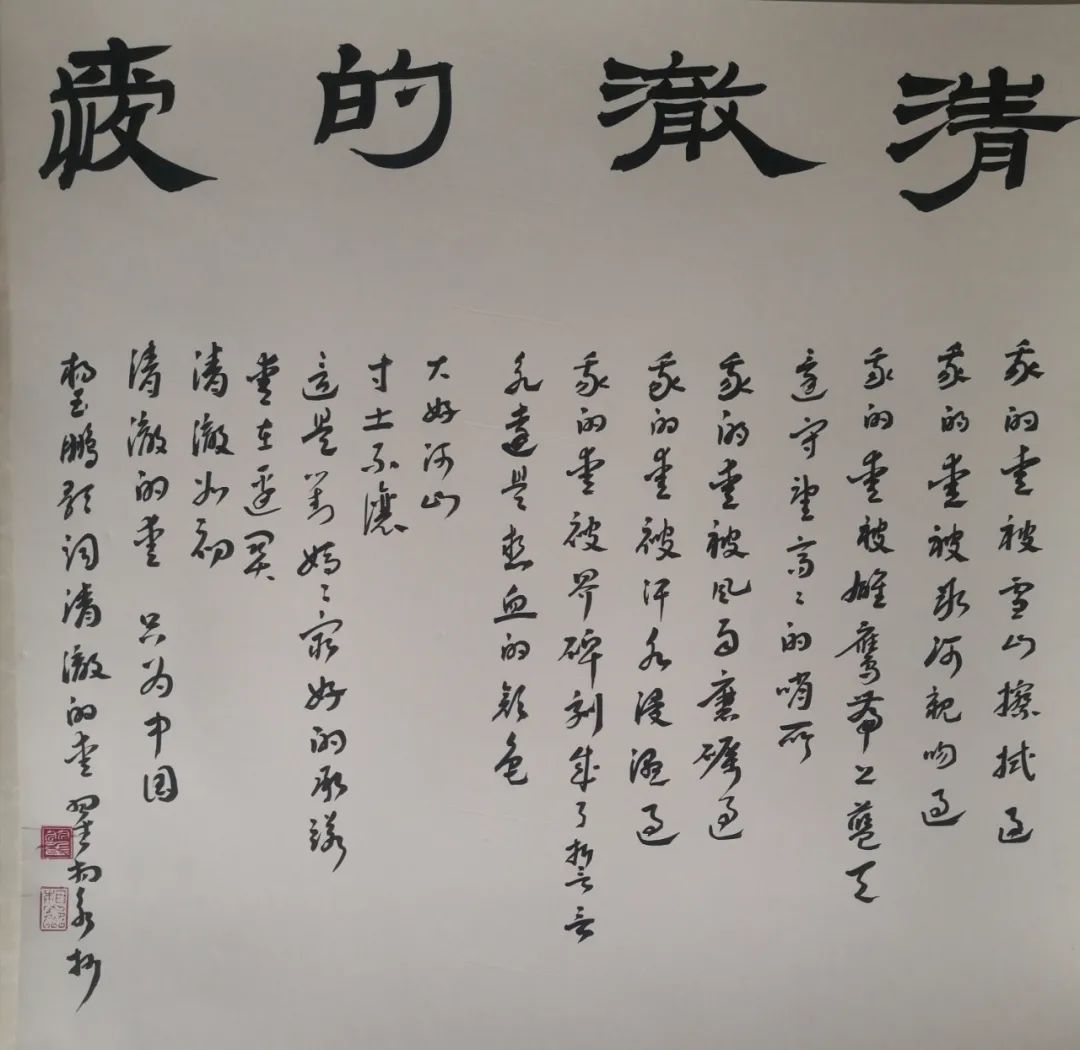 清澈的爱
我的爱被雪山擦拭过
我的爱被冰河亲吻过
我的爱被雄鹰带上蓝天
远守望高高的哨所
我的爱被风雨磨砺过
我的爱被汗水浸湿过
我的爱被界碑刻成了誓言
永远是热血的颜色
大好河山
寸土不让
这是对妈妈最好的承诺
爱在边关
清澈如初
清澈的爱 只为中国
杨玉鹏歌词清澈的爱 翟相永抄